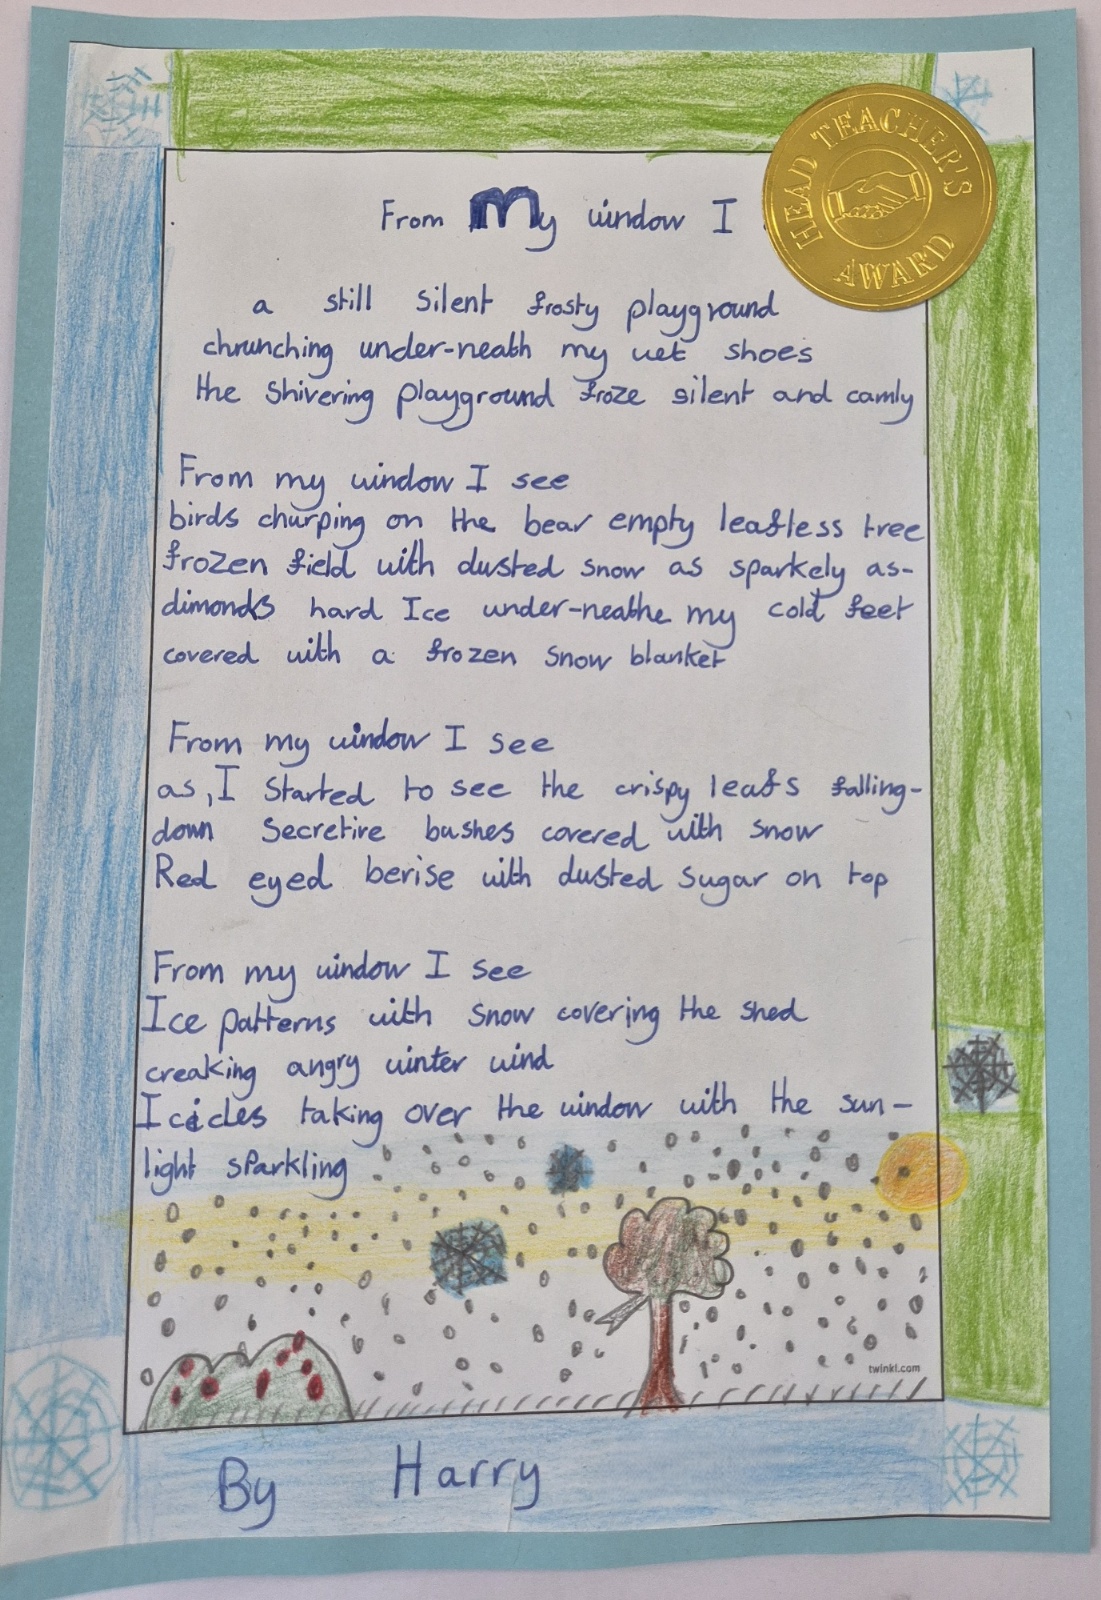 From my window I
HEAD TEACHER'S
AWARD
a still silent frosty playground
chrunching under-neath my wet shoes
the shivering playground froze silent and camly
From my window I see
birds churping on the bear empty leafless tree
frozen field with dusted snow as sparkely as-
dimonds hard Ice under-neathe my cold feet
covered with a frozen snow blanket
From my window I see
as, I started to see the crispy leafs falling-
down secretire bushes covered with snow
Red eyed berise with dusted sugar on top
From my window I see
Ice patterns with snow covering the shed
creaking angry winter wind
Icicles taking over the window with the sun-
light sparkling
twinkl.com
By Harry